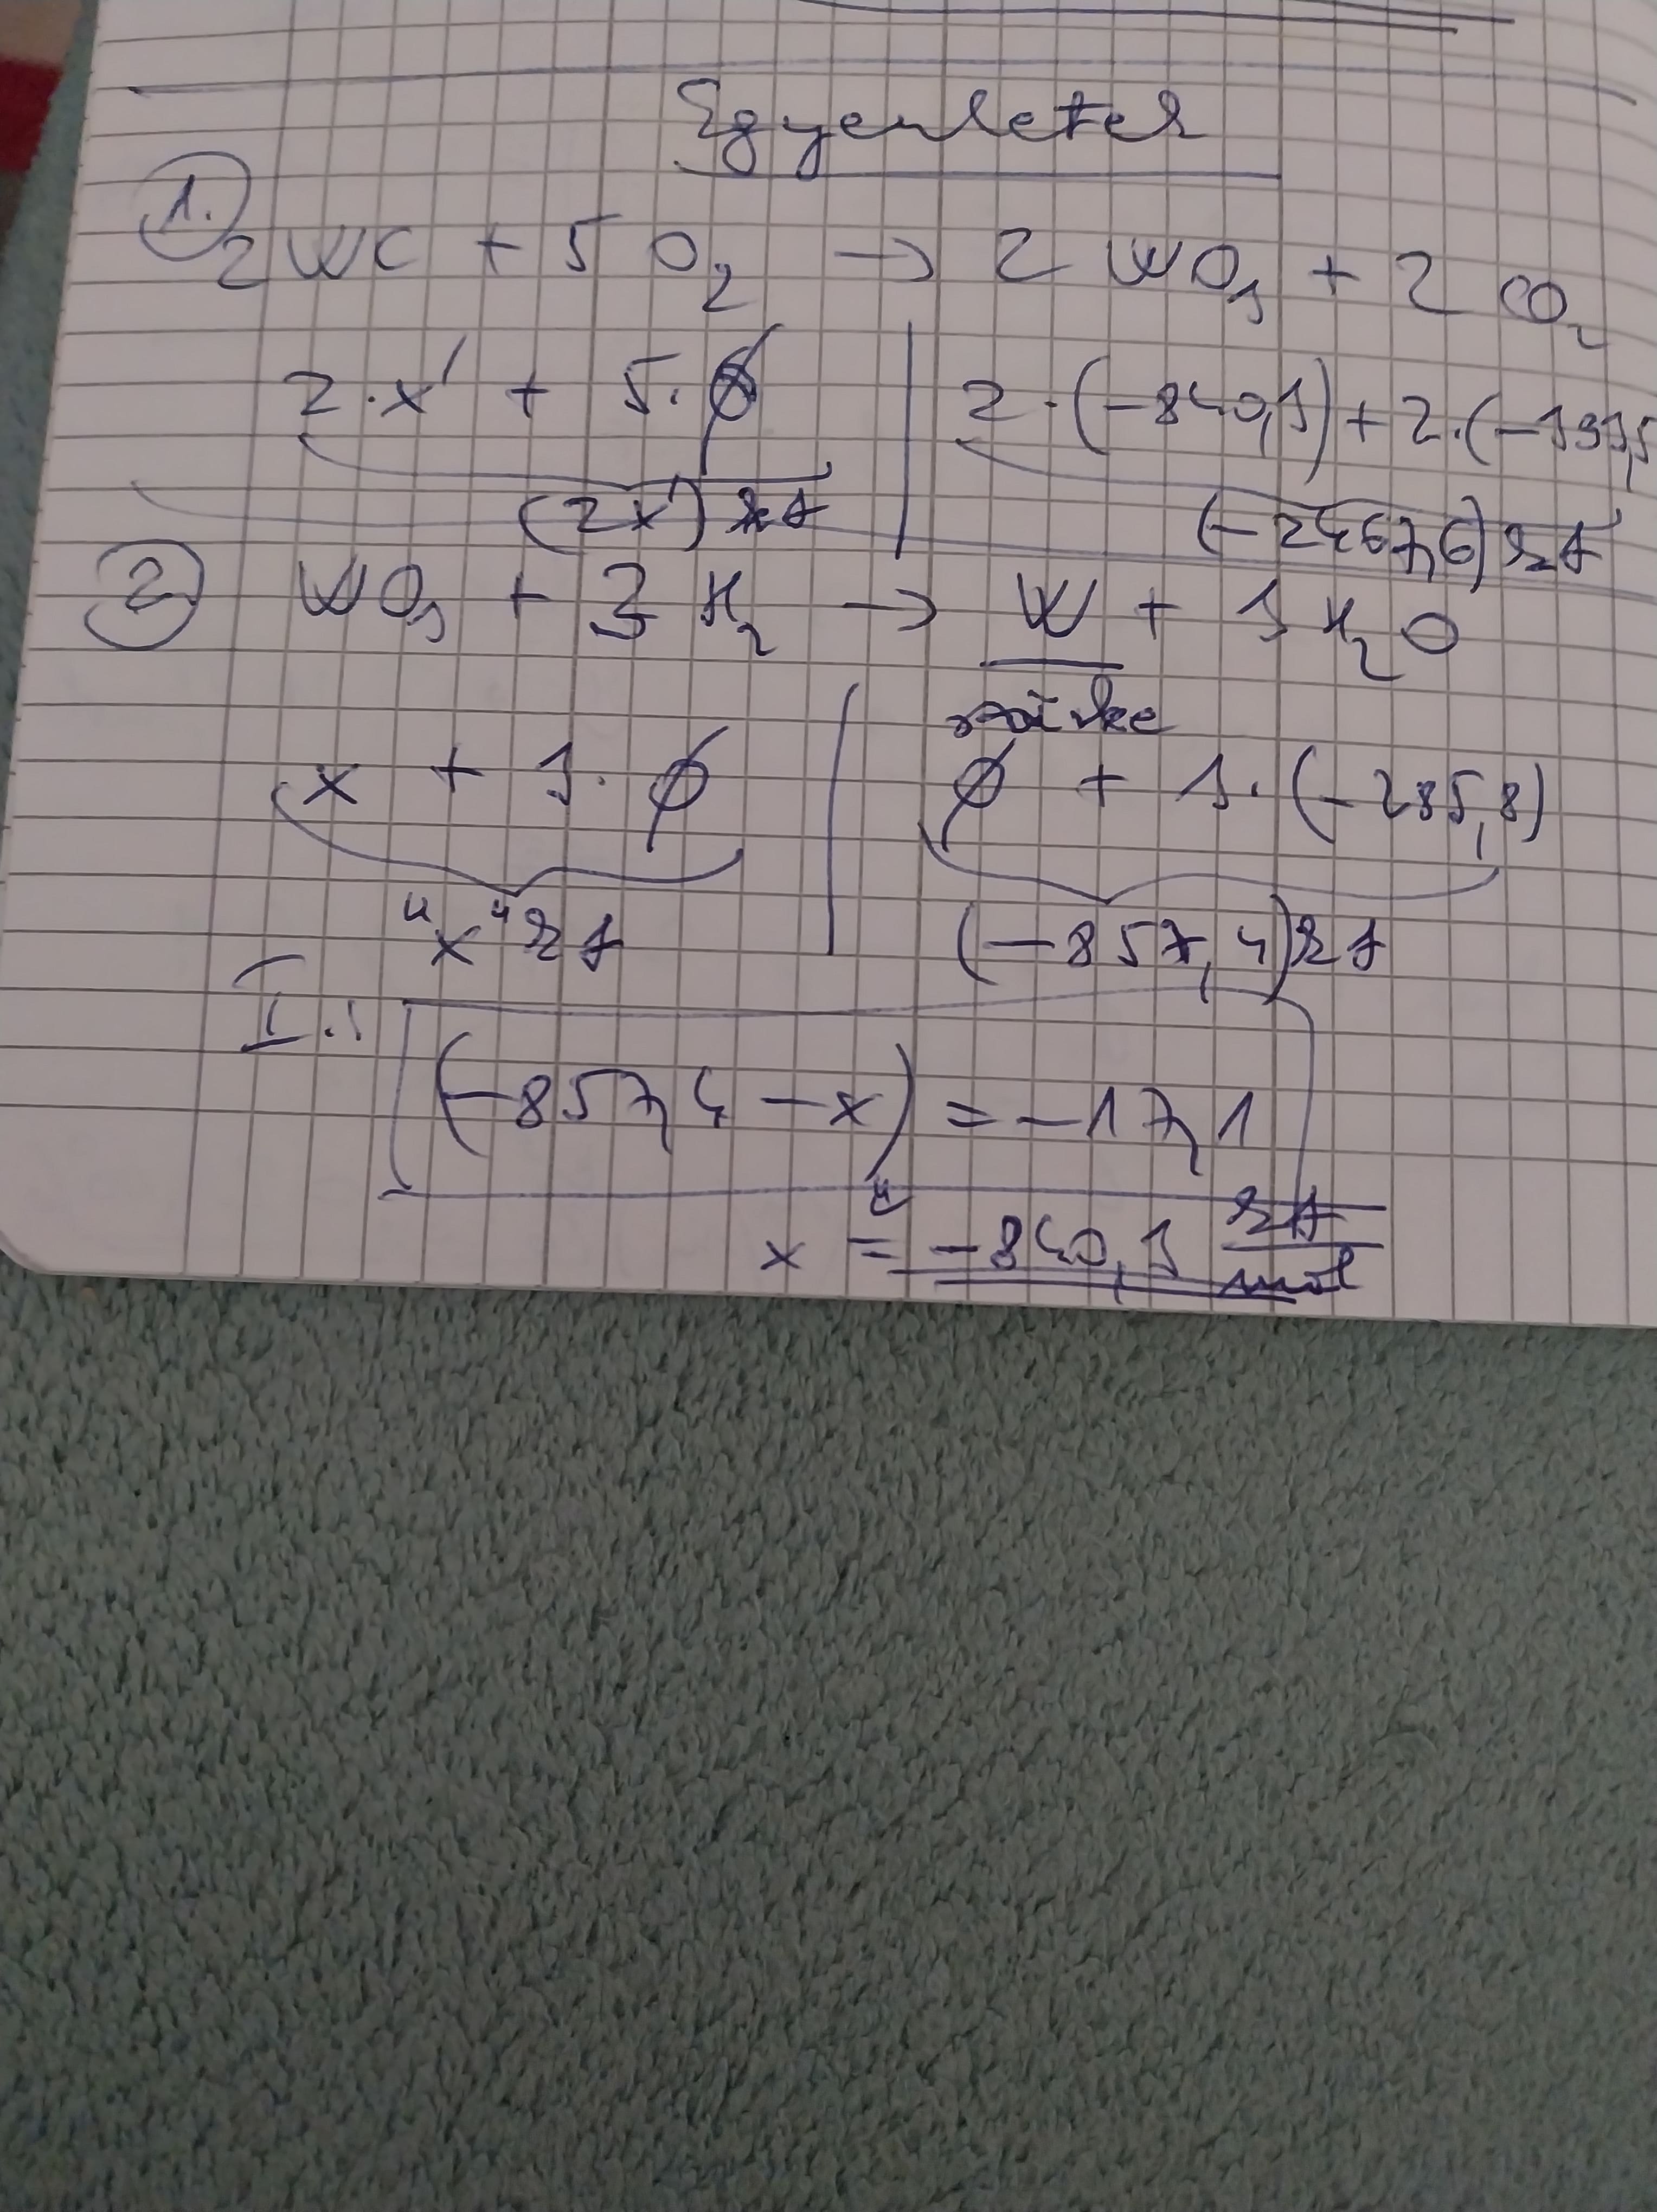 Egyenletek
1. 2 WC + 5 O2 → 2 WO3 + 2 CO2
2·x' + 5·∅ | 2·(-840,3) + 2·(-393,5
(2x') kJ (-2467,6) kJ
2 WO3 + 3 H2 → W + 3 H2O
szürke
x + 3·∅ | ∅ + 3·(-285,8)
"x" kJ (-857,4) kJ
I.: (-857,4 - x) = -17,1
x = -840,3 kJ/mol